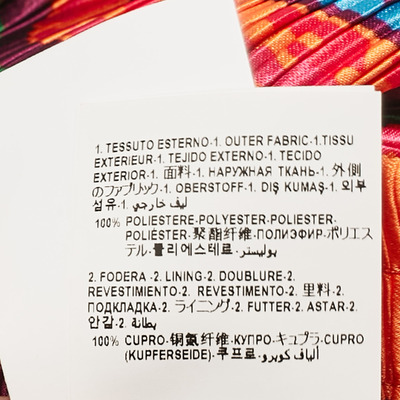 1. TESSUTO ESTERNO-1. OUTER FABRIC-1.TISSU
EXTERIEUR-1. TEJIDO EXTERNO-1. TECIDO
EXTERIOR-1. 面料-1. НАРУЖНАЯ ТКАНЬ-1. 外側
のファブリック-1. OBERSTOFF-1. DIŞ KUMAŞ-1. 외부
섬유-1. ليف خارجي
100% POLIESTERE-POLYESTER-POLIESTER-
POLIÉSTER-聚酯纤维-ПОЛИЭФИР-ポリエス
テル-폴리에스테르-بوليستر
2. FODERA-2. LINING-2. DOUBLURE-2.
REVESTIMIENTO-2. REVESTIMENTO-2. 里料-2.
ПОДКЛАДКА-2. ライニング-2. FUTTER-2. ASTAR-2.
안감-2. بطانة
100% CUPRO-铜氨纤维-КУПРО-キュプラ-CUPRO
(KUPFERSEIDE)-쿠프로-ألياف كوبرو